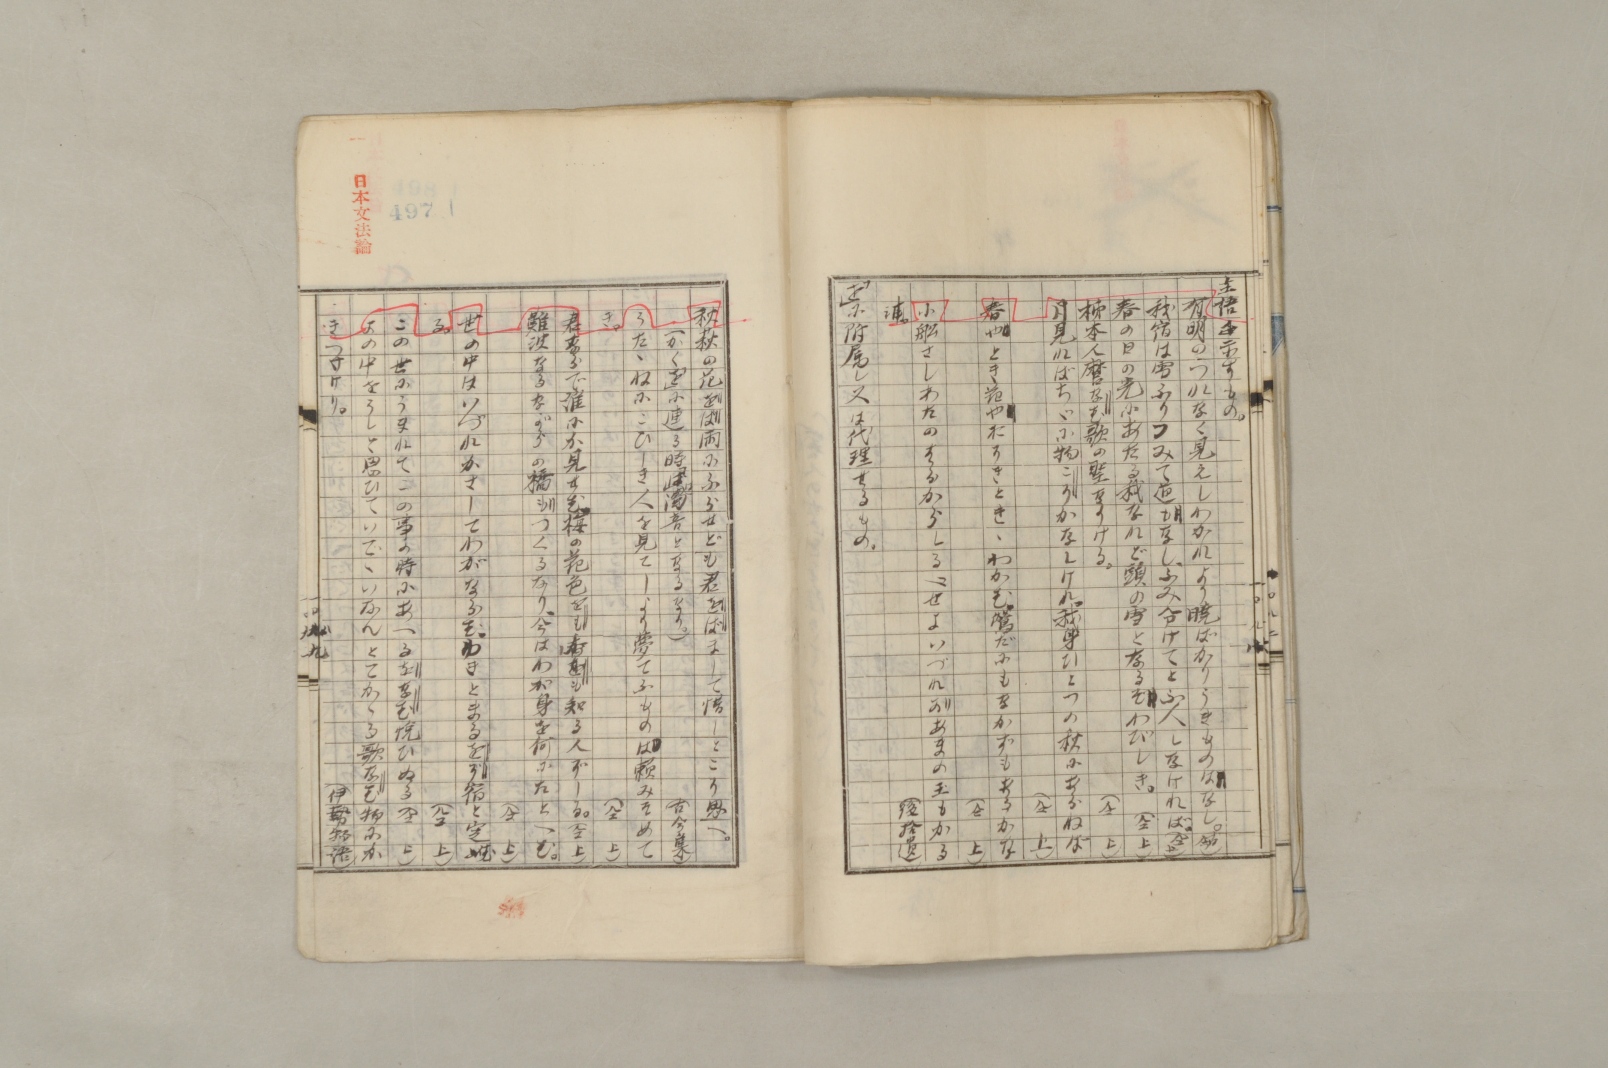 主語に立てるもの。
有明のつれなく見えしわかれより暁ばかりうきものはなし。
我宿は雪ふりつみて道もなし、ふみ分けてとふ人しなければ。
春の日の光にあたる我なれど頭の雪となるぞわびしき。(仝上)
柿本人麿なむ歌の聖なりける。(仝上)
月見ればちゞに物こそかなしけれ。我身ひとつの秋にあらねば(仝上)
春やとき花やおそきとき、わかむ鶯だにもなかずもあるかな(仝上)
小舩さしわたのはらからしるべせよいづれかあまの玉もかる
浦。(後拾遺)
主に附属し又は代理せるもの。
日本文法論
497
秋萩の花をば雨にぬらせども君をばまして惜しとこそ思へ。
(かく「を」に連る時は濁音となるなり。)(古今集)
うたゝねにこひしき人を見てしより夢てふものは頼みそめて
き。(仝上)
君ならで誰にか見せむ梅の花色をも香をも知る人ぞしる。(仝上)
難波なるながらの橋もつくるなり、今はわが身を何にたとへむ。(仝上)
世の中はいづれかさしてわがならむ。ゆきとまるをぞ宿と定む
る。(仝上)
この世にうまれてこの事の時にあへるをなむ悦びぬる(仝上)
よの中をうしと思ひていでゝいなんとてかゝる歌をなむ物にか
きつけけり。(伊勢物語)